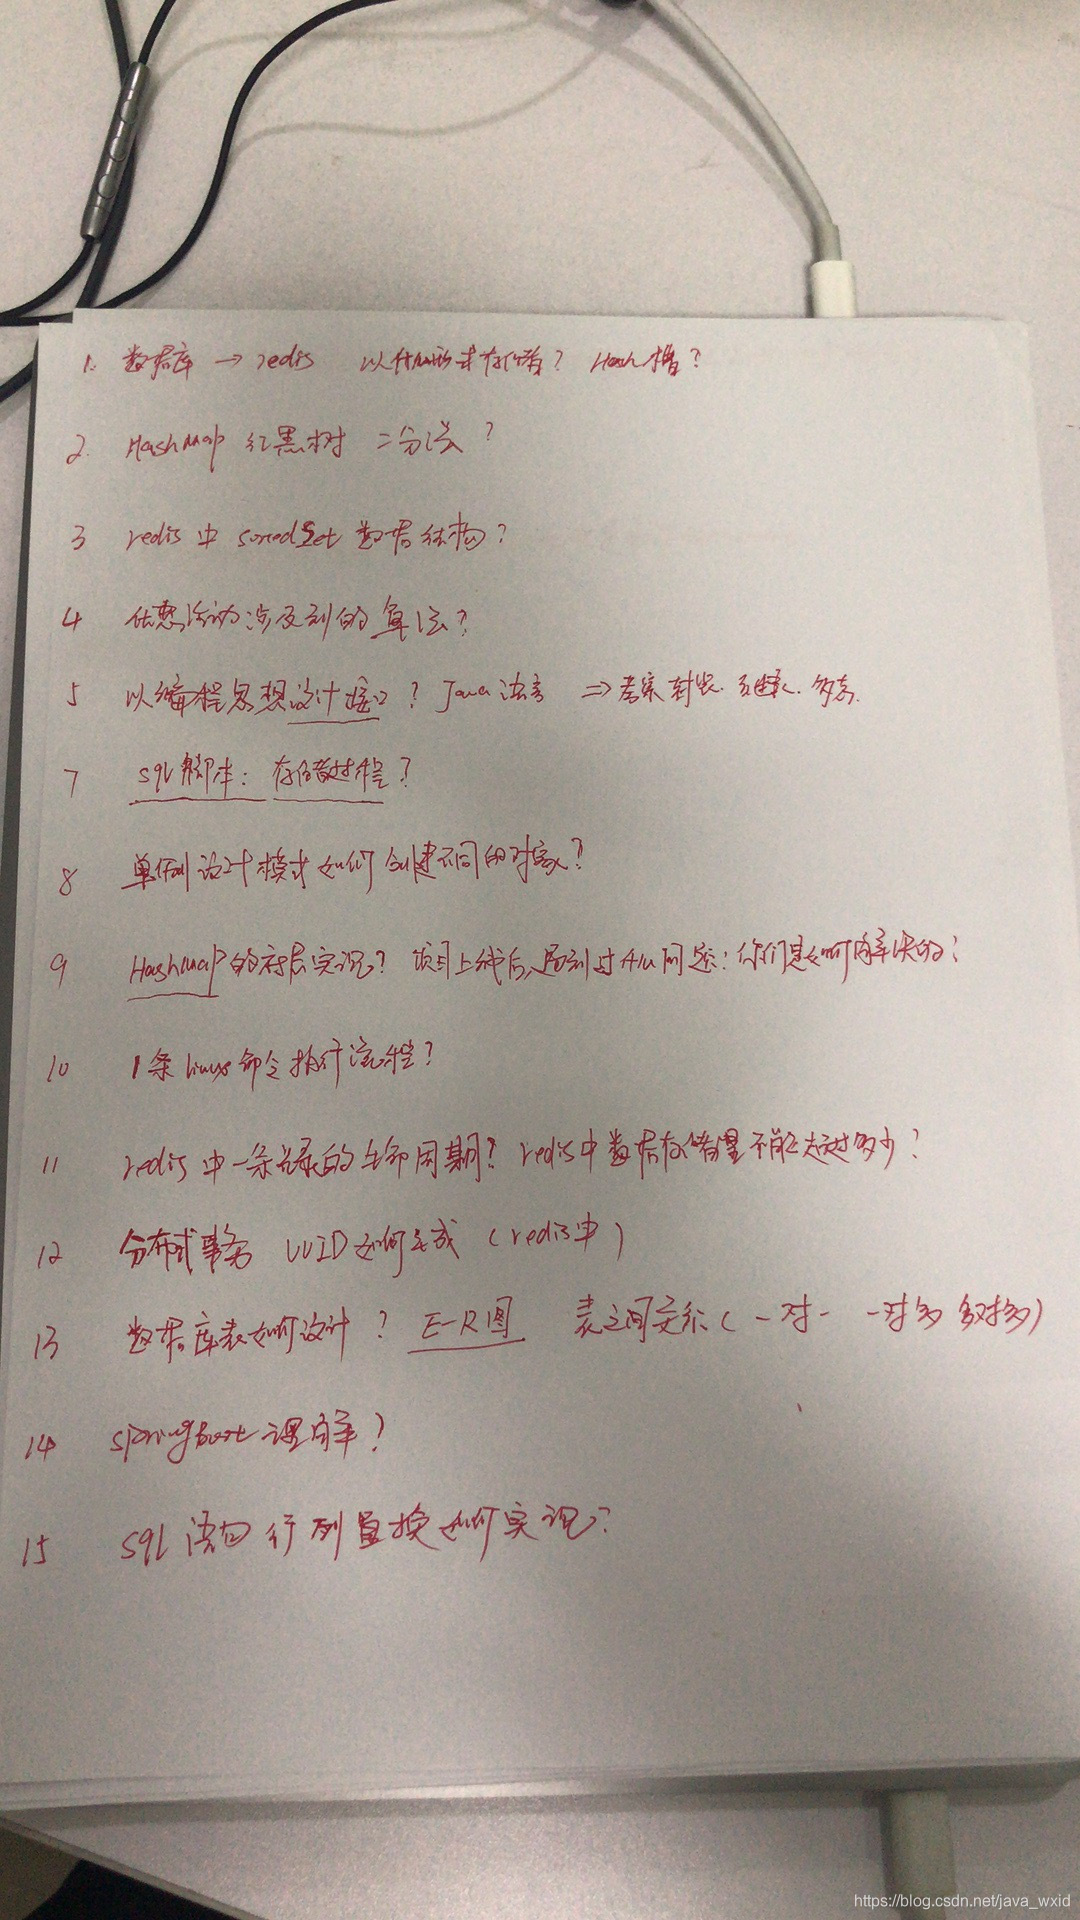 1. 数据库 → redis 以什么形式存储? Hash槽?
2. HashMap 红黑树 二分法?
3 redis中 soredSet 数据结构?
4 优惠活动涉及到的算法?
5 以编程思想设计接口? Java语言 ⇒ 考察封装. 继承. 多态.
7 sql脚本: 存储过程?
8 单例设计模式如何创建不同的对象?
9 HashMap的底层实现? 项目上线后,遇到过什么问题; 你们是如何解决的?
10 1条linux命令执行流程?
11 redis中一条记录的生命周期? redis中数据存储量不能超过多少?
12 分布式事务 UUID如何生成 (redis中)
13 数据库表如何设计? E-R图 表之间关系(一对一 一对多 多对多)
14 springBoot理解?
15 sql语句行列置换如何实现?
https://blog.csdn.net/java_wxid